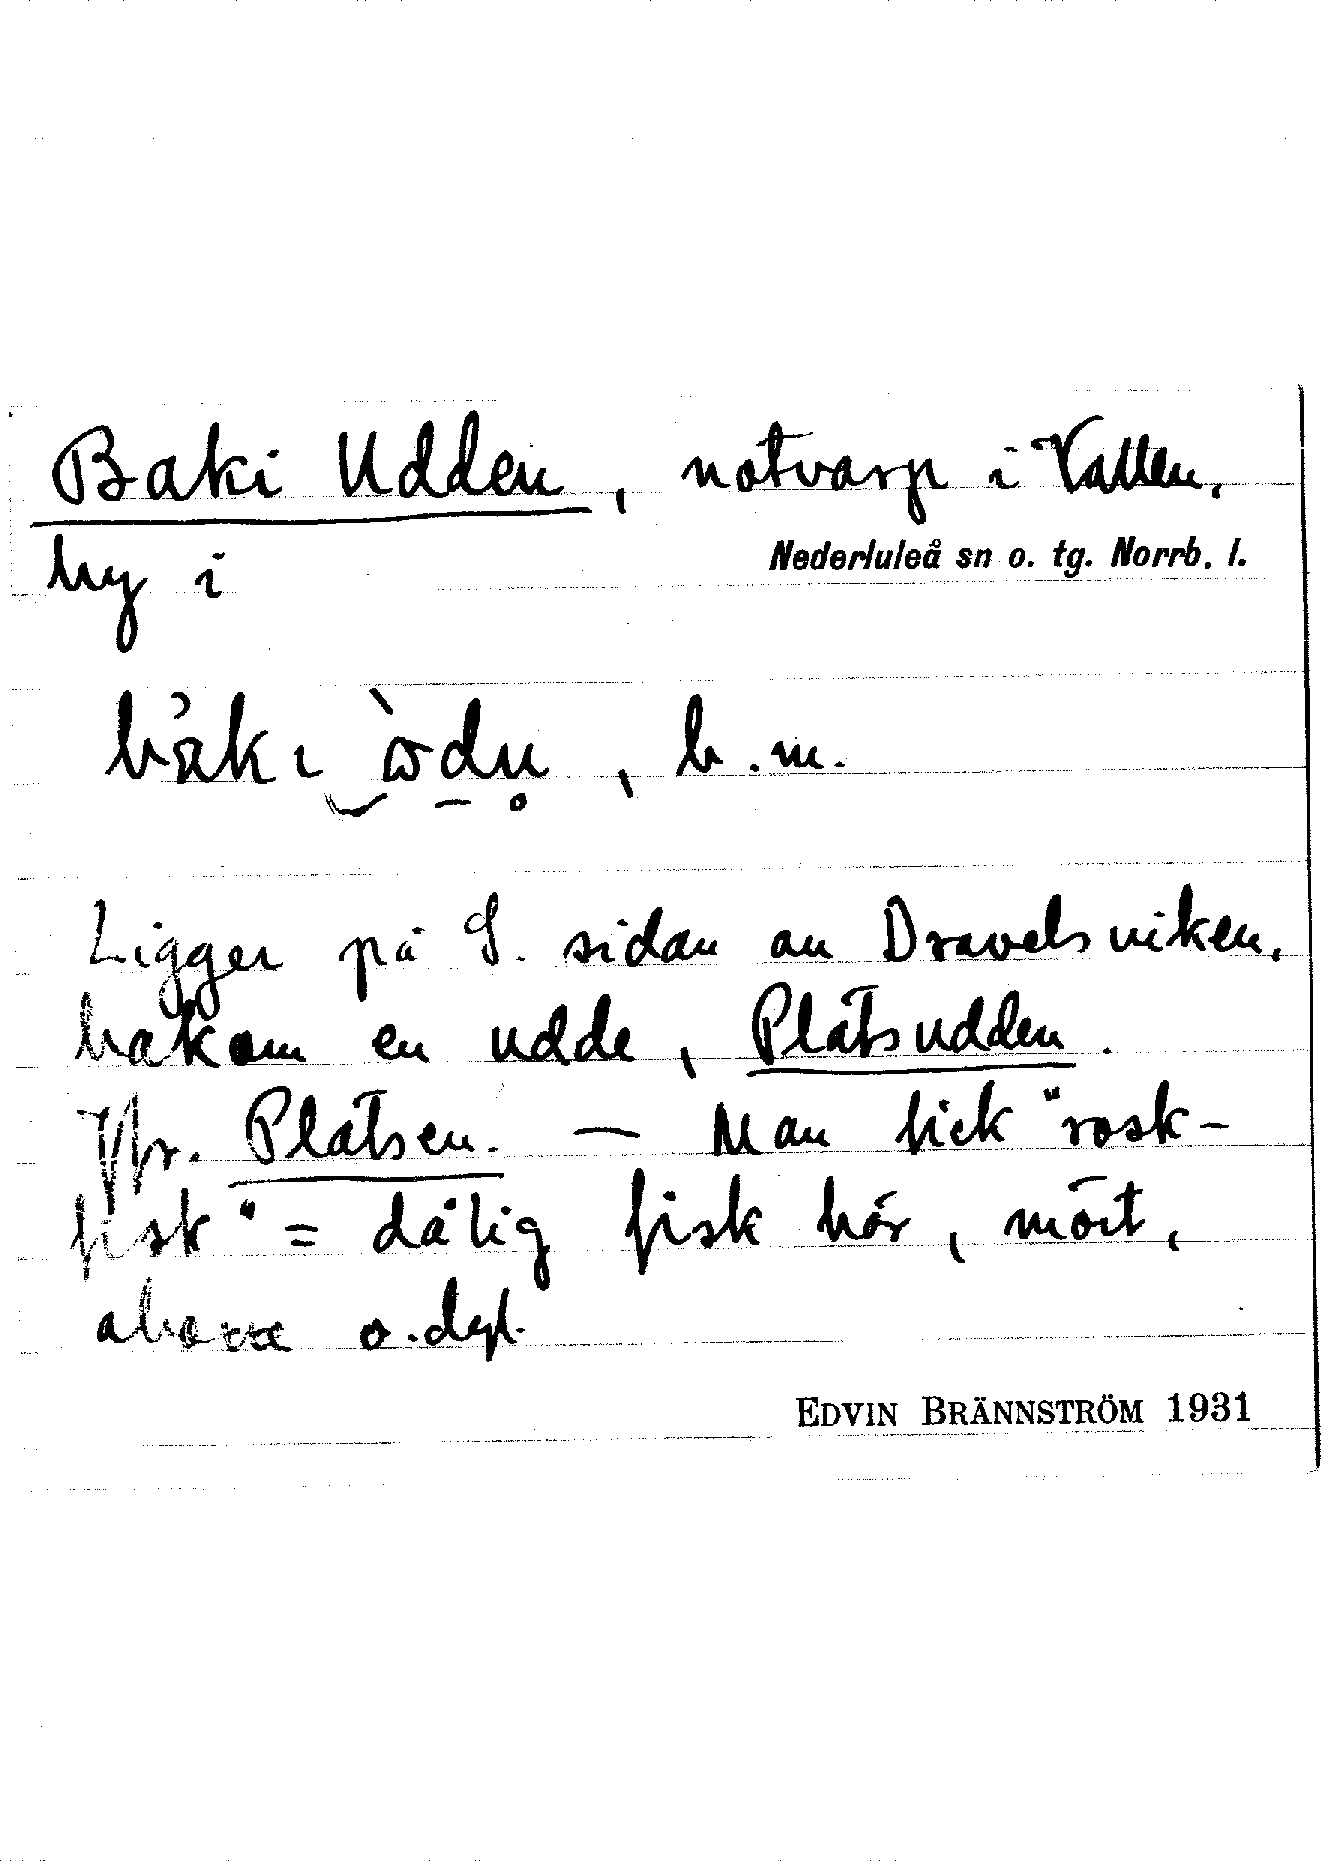 Baki Udden, notvarp i Vallen,
by i Nederluleå sn o. tg. Norrb. l.
, b.m.
Ligger på S. sidan av Dravelsviken,
bakom en udde, Platsudden.
Jfr. Platsen. — Man fick "rosk-
fisk" = dålig fisk här, mört,
aborre o.dyl.
EDVIN BRÄNNSTRÖM 1931